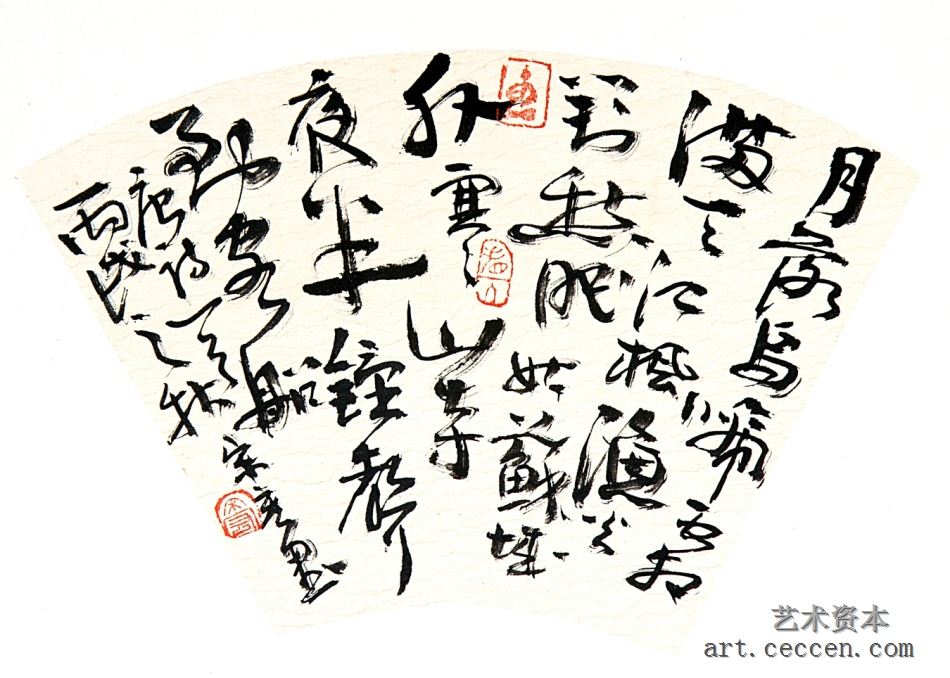 月落烏啼霜
滿天江楓漁火
對愁眠姑蘇城
外寒山寺
夜半鐘聲
到客船
唐詩
丙戌之秋
艺术资本
art.ceccen.com